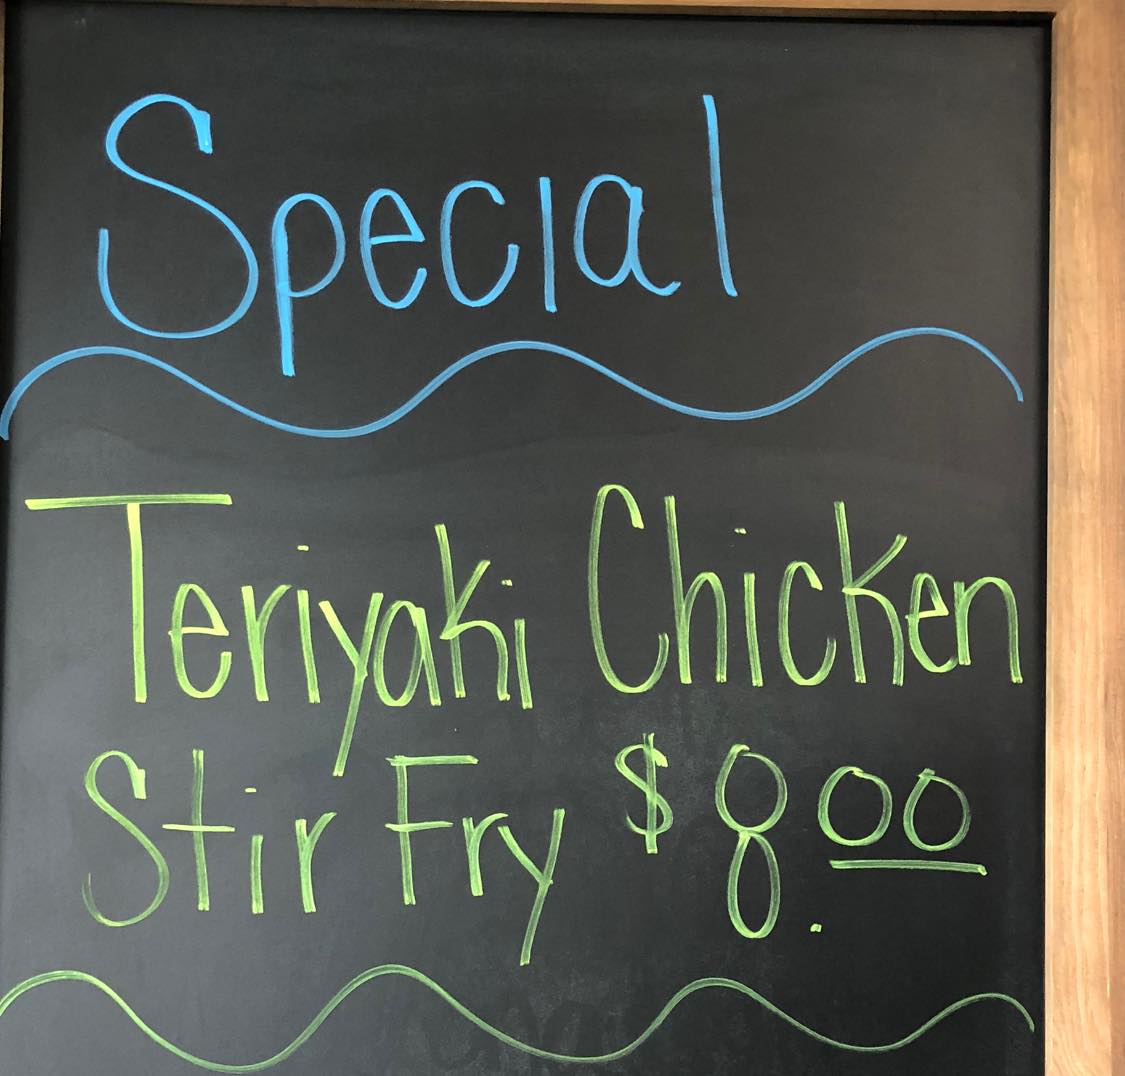 Special
Teriyaki Chicken
Stir Fry $8.00